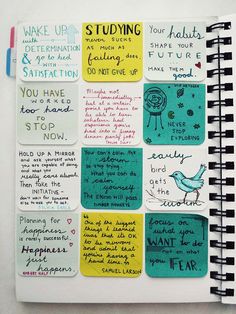 WAKE UP
with
DETERMINATION
& go to bed
with
SATISFACTION
STUDYING
never SUCKS
AS MUCH AS
failing does
DO NOT GIVE UP
Your habits
SHAPE YOUR
FUTURE
MAKE them
good.
YOU HAVE
WORKED
too hard
TO
STOP
NOW.
Maybe not
immediately
but at a certain
point you have
to be able to
turn whatever
bad
experience you
had into a
funny dinner
party
NEVER
STOP
EXPLORING
HOLD UP A MIRROR
and ask yourself what
you are capable of doing
and what you
really care about.
Then take the
INITIATIVE -
don't wait for someone
else to ask you to act
You can't calm the
storm
so stop trying.
What you can do
is calm
yourself
The storm will pass
TIMBER HAWKEYE
early
bird
gets
the
worm
Planning for
happiness
is rarely successful.
Happiness
just
happens.
One of the biggest
things I learned
was that it OK
to be nervous
and admit that
you're
having a
hard time
SAMUEL LARSEN
focus on
what you
WANT to do
not on what
you FEAR.